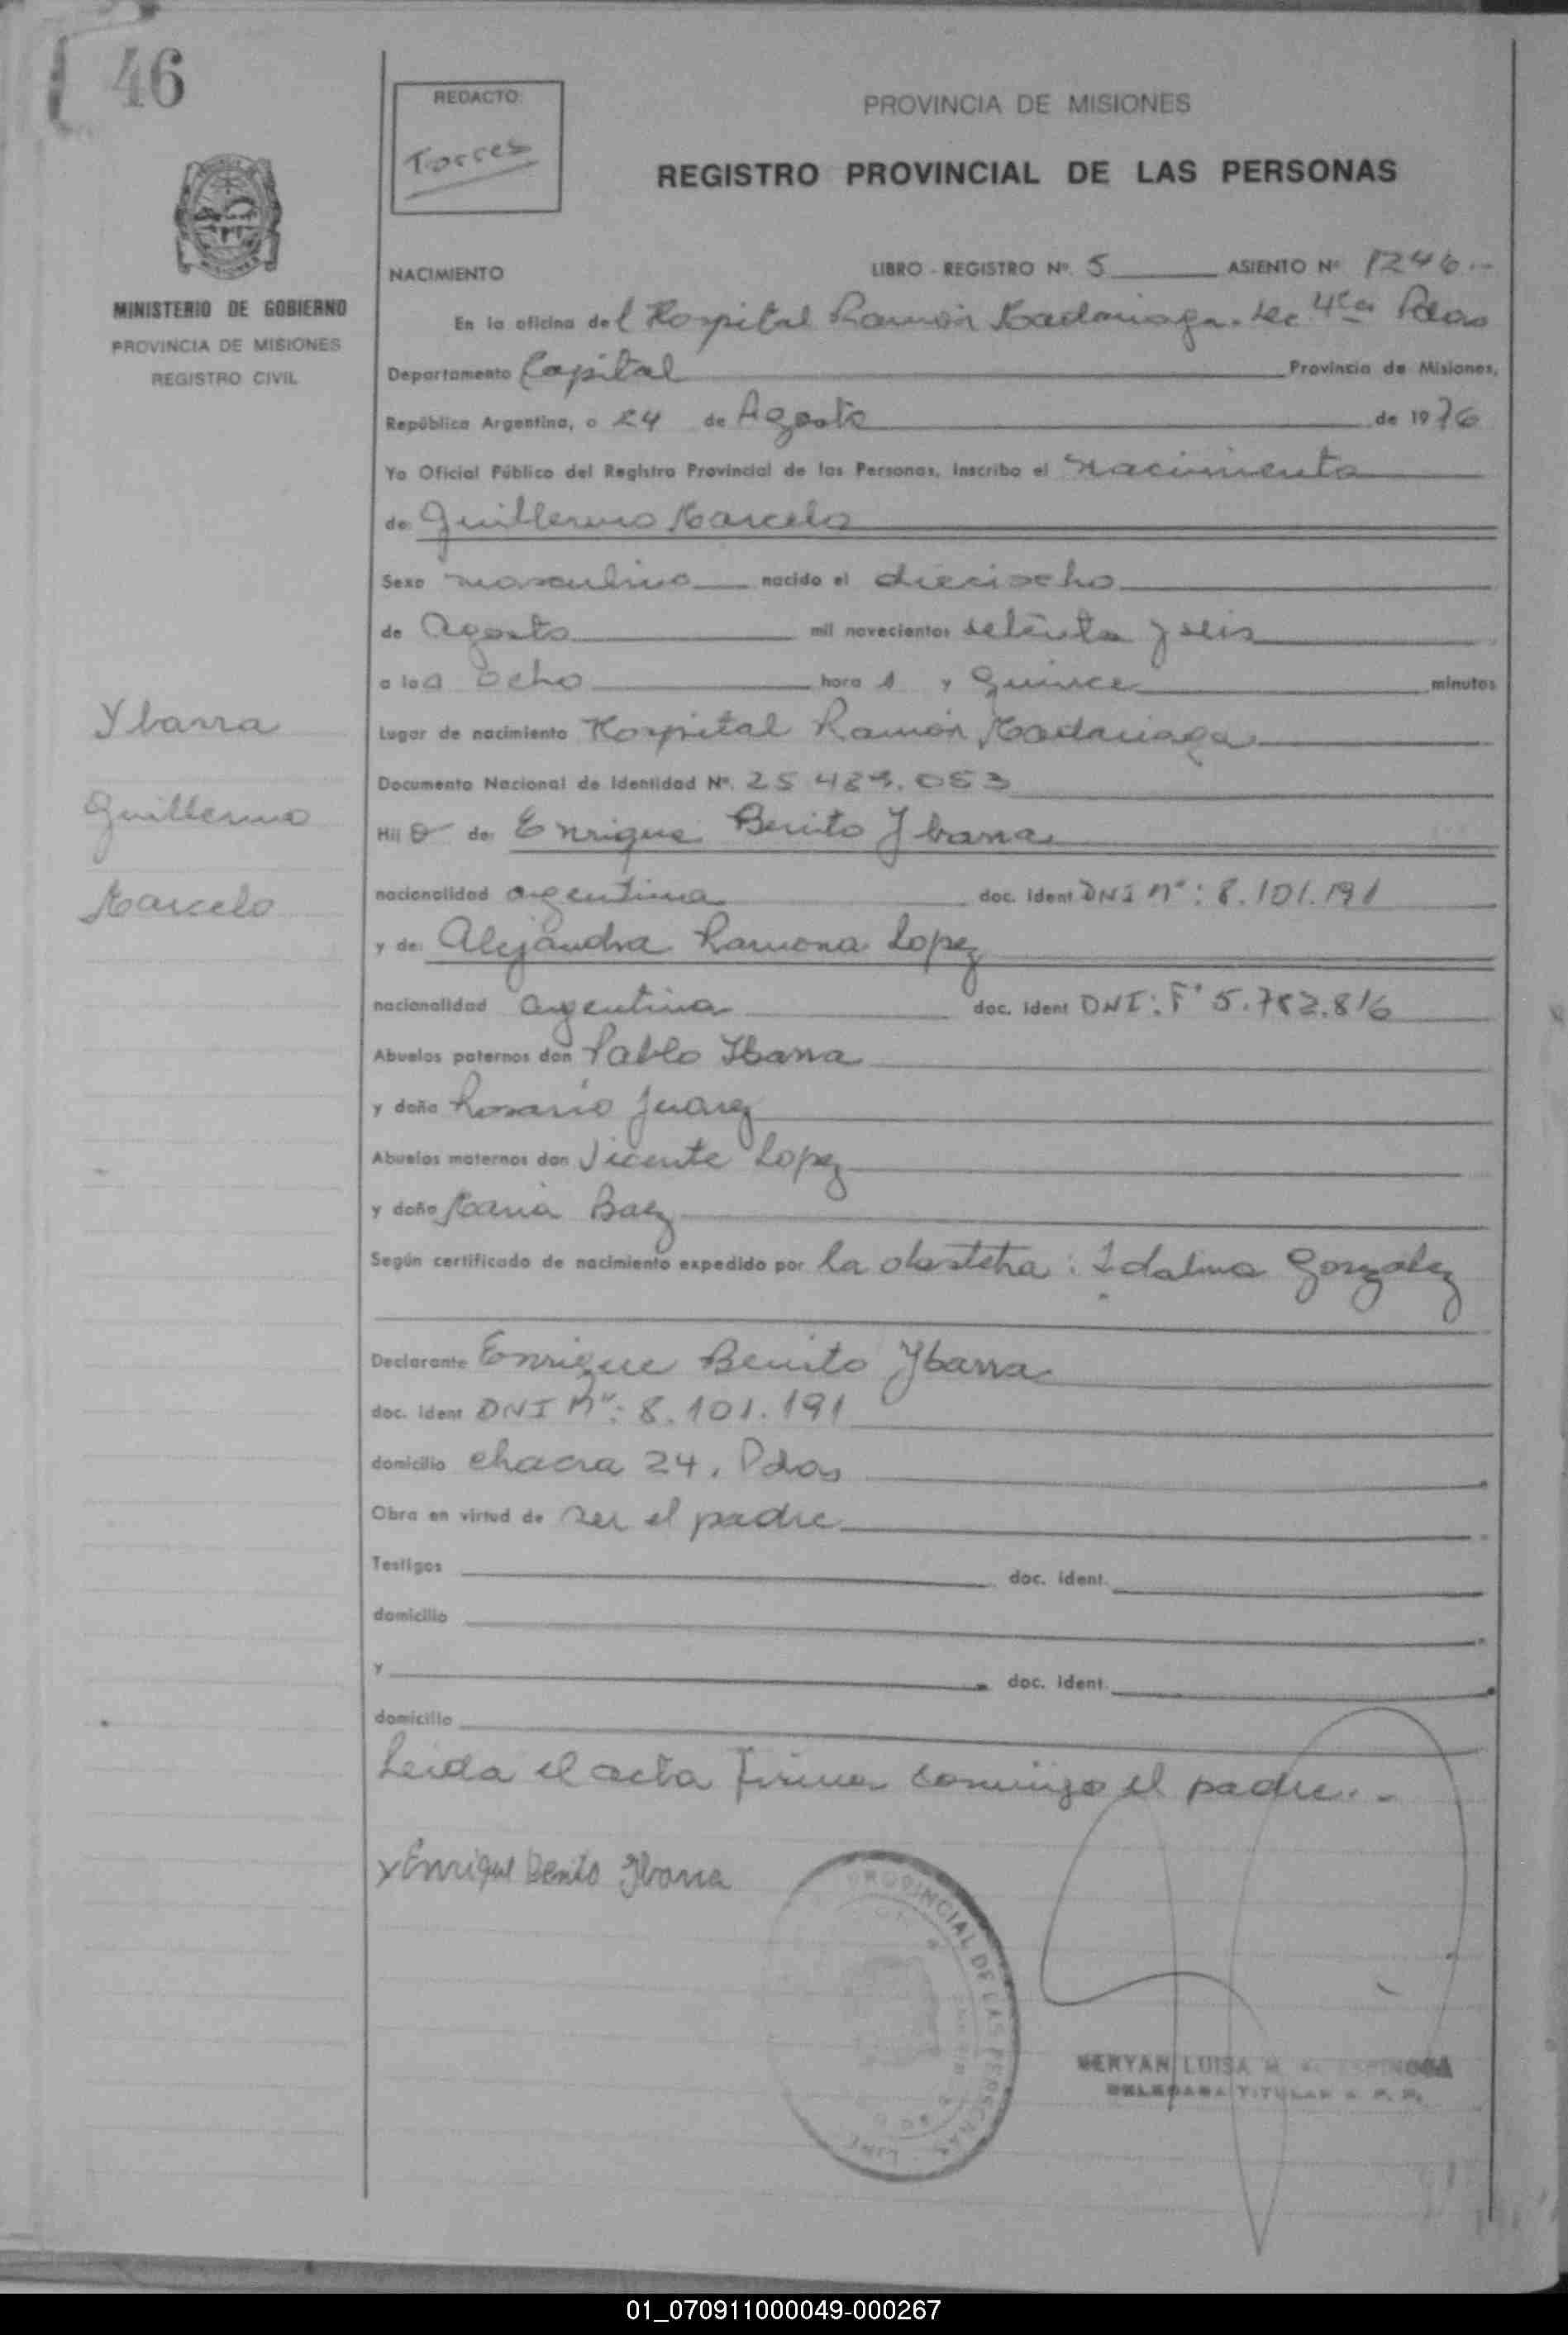 46
REDACTO:
Torres
PROVINCIA DE MISIONES
REGISTRO PROVINCIAL DE LAS PERSONAS
MINISTERIO DE GOBIERNO
PROVINCIA DE MISIONES
REGISTRO CIVIL
NACIMIENTO LIBRO - REGISTRO Nº. 5 ASIENTO Nº 1246.-
En la oficina del Hospital Ramón Madariaga. Sec 4ta Pdas
Departamento Capital Provincia de Misiones,
República Argentina, a 24 de Agosto de 1976
Yo Oficial Público del Registro Provincial de las Personas, inscribo el Nacimiento
de Guillermo Marcelo
Sexo masculino nacido el dieciocho
de Agosto mil novecientos setenta y seis
a las ocho horas y quince minutos
Lugar de nacimiento Hospital Ramón Madariaga
Documento Nacional de Identidad Nº. 25.489.053
Ybarra
Guillermo
Marcelo
Hijo de: Enrique Benito Ybarra
nacionalidad argentina doc. ident DNI Nº: 8.101.191
y de: Alejandra Ramona Lopez
nacionalidad argentina doc. ident DNI: F' 5.782.816
Abuelos paternos don Pablo Ibarra
y doña Rosario Juarez
Abuelos maternos don Vicente Lopez
y doña Maria Baez
Según certificado de nacimiento expedido por la obstetra: Idalina González
Declarante Enrique Benito Ybarra
doc. ident DNI Nº: 8.101.191
domicilio chacra 24, Pdas
Obra en virtud de ser el padre
Testigos doc. ident.
domicilio
y doc. ident.
domicilio
Leida el acta firma conmigo el padre.-
x Enrique Benito Ybarra
PROVINCIAL DE LAS PERSONAS
MERYAN LUISA M. ESPINOSA
DELEGADA TITULAR R. P. P.
01_070911000049-000267